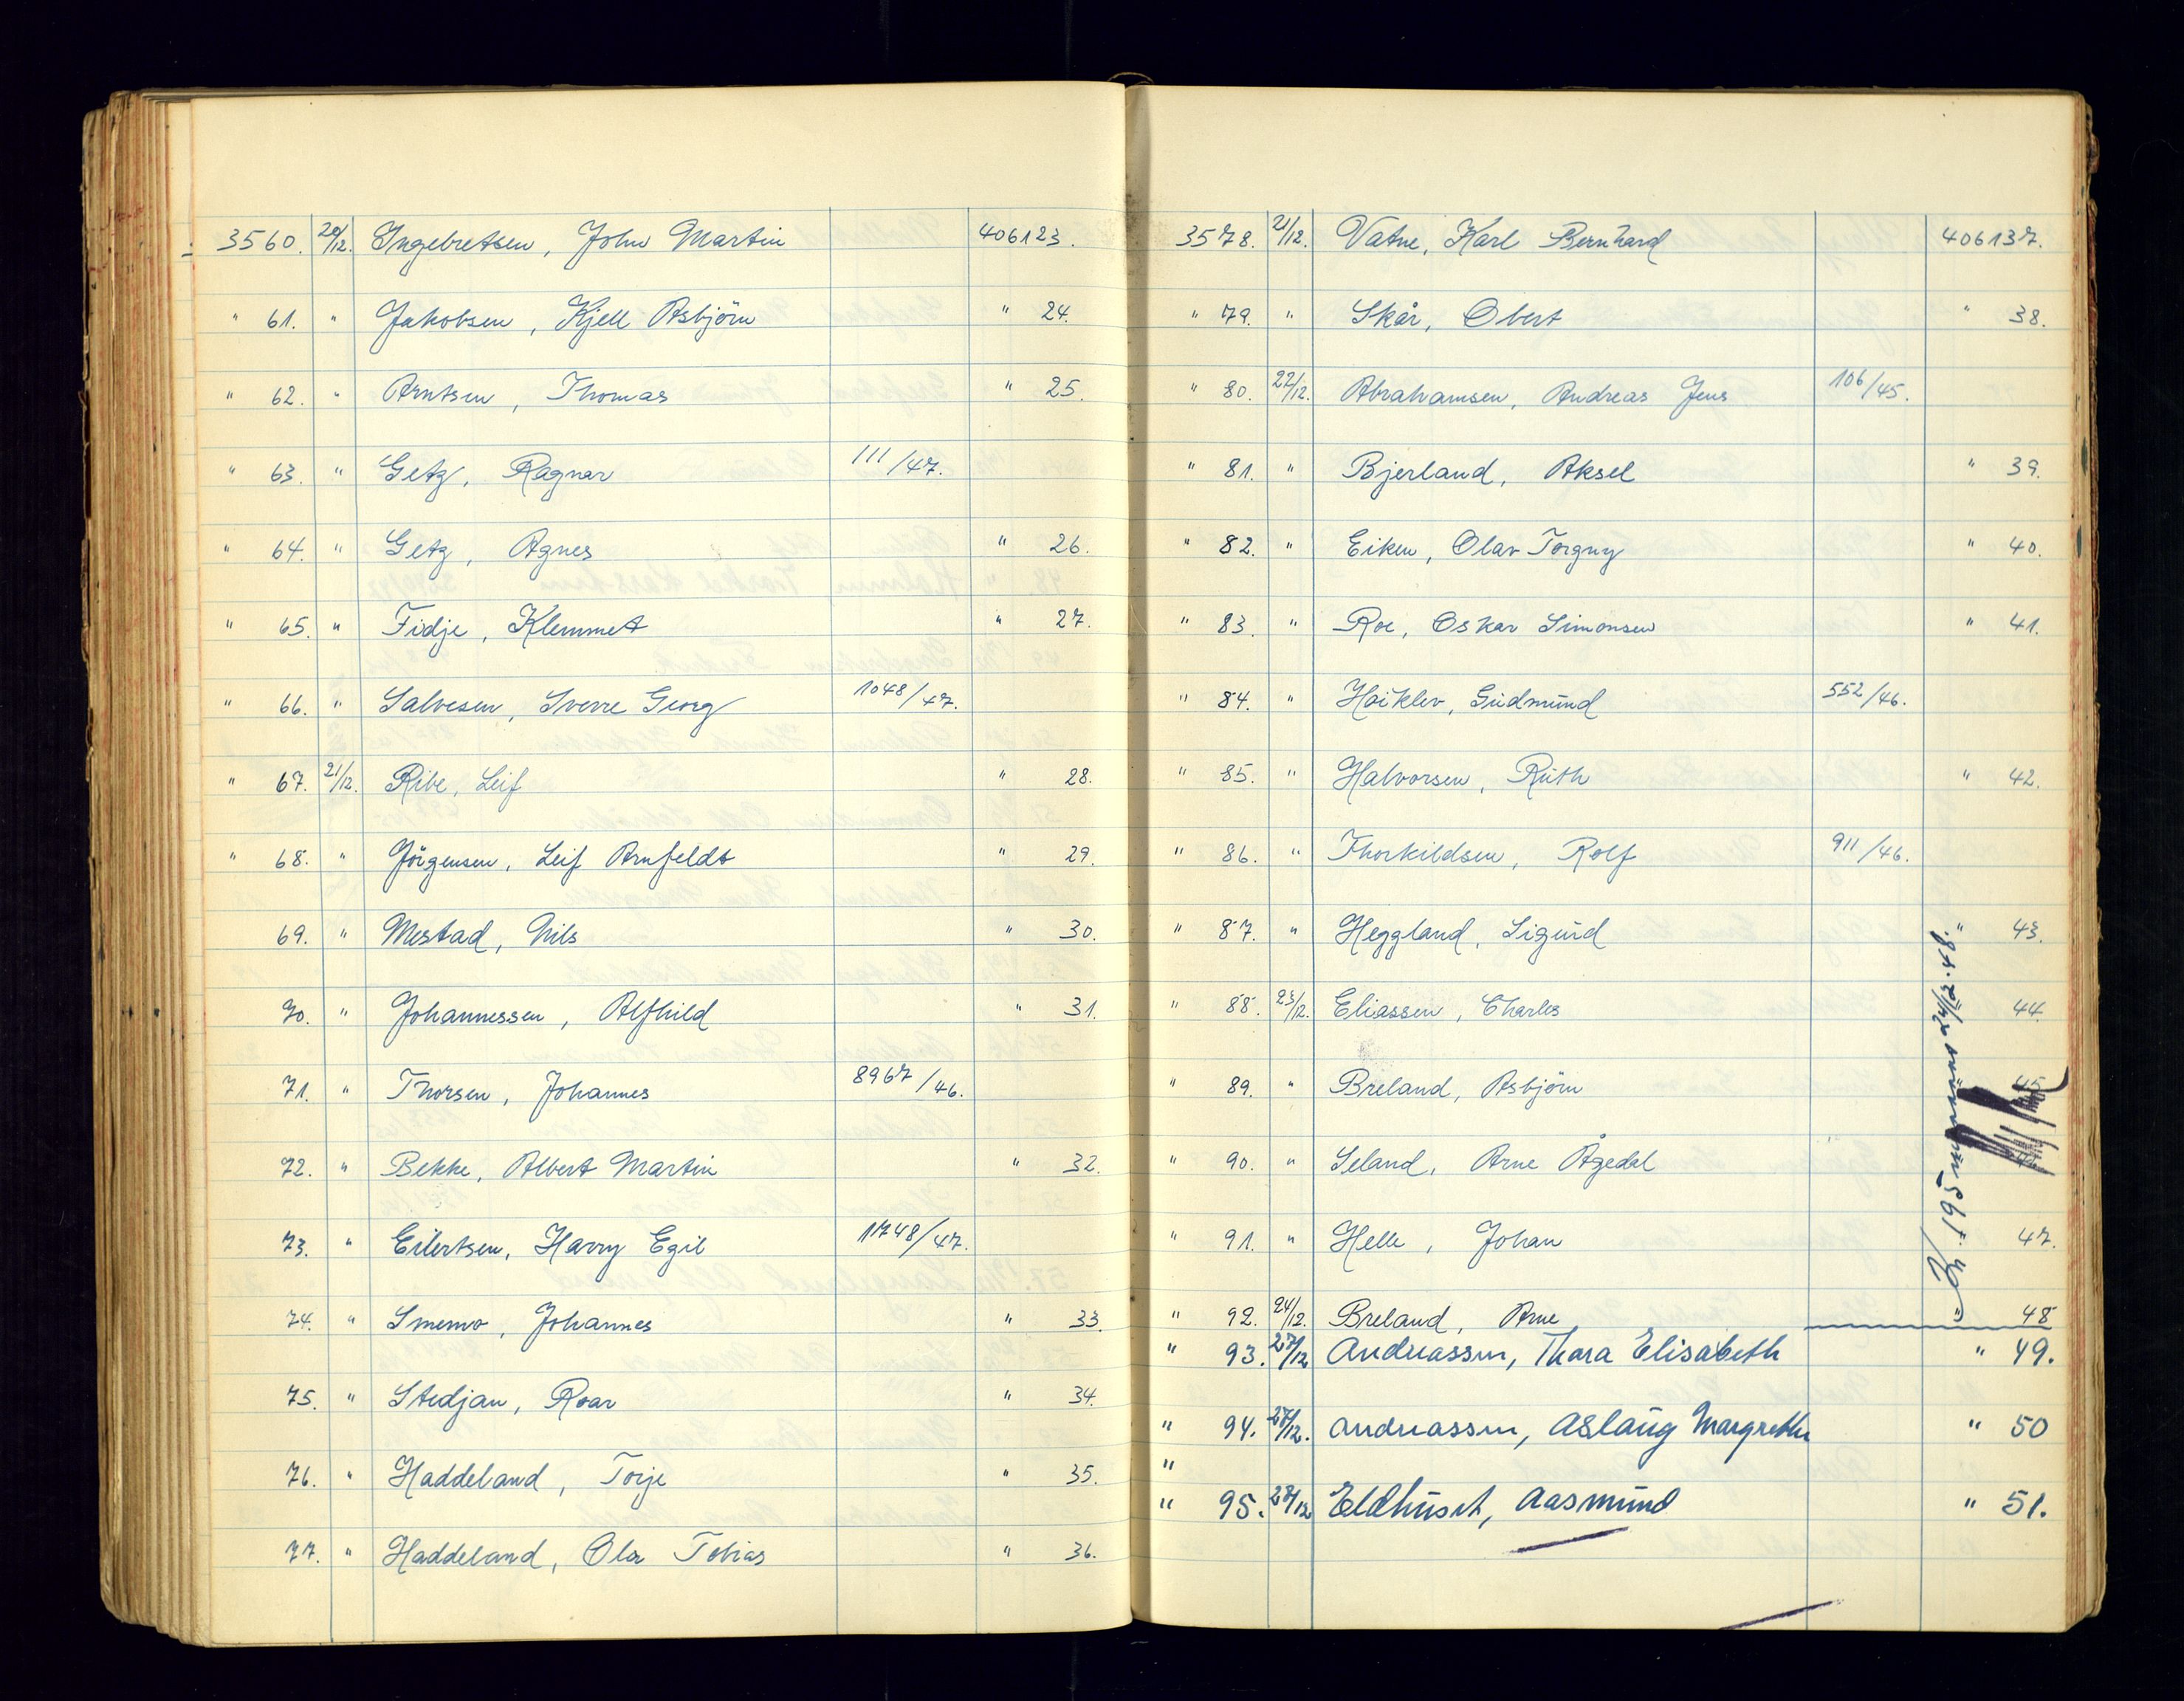 3560. 20/12. Ingebretsen, John Martin 406123.
" 61. " Jakobsen, Kjell Asbjörn " 24.
" 62. " Arntsen, Thomas " 25.
" 63. " Getz, Ragnar 111/47.
" 64. " Getz, Agnes " 26.
" 65. " Fidje, Klemmet " 27.
" 66. " Salvesen, Sverre Georg 1048/47.
" 67. 21/12. Ribe, Leif " 28.
" 68. " Jörgensen, Leif Arnfeldt " 29.
69. " Mestad, Nils " 30.
70. " Johannessen, Alfhild " 31.
71. " Thorsen, Johannes 8967/46.
72. " Bekke, Albert Martin " 32.
73. " Eilertsen, Harry Egil 11748/47.
74. " Smemo, Johannes " 33.
75. " Stedjan, Roar " 34.
76. " Haddeland, Torje " 35.
77. " Haddeland, Ola Tobias " 36.
3578. 21/12. Vatne, Karl Bernhard 406137.
" 79. " Skår, Obert " 38.
" 80. 22/12. Abrahamsen, Andreas Jens 106/45.
" 81. " Bjerland, Aksel " 39.
" 82. " Eiken, Olav Torgny " 40.
" 83. " Roe, Oskar Simonsen " 41.
" 84. " Hoiklev, Gudmund 552/46.
" 85. " Halvorsen, Ruth " 42.
" 86. " Thorkildsen, Rolf 911/46.
" 87. " Heggland, Sigurd " 43.
" 88. 23/12. Eliassen, Charles 44.
" 89. " Breland, Asbjörn 45
" 90. " Seland, Arne Ågedal
" 91. " Helle, Johan 47.
" 92. 24/12. Breland, Arne " 48
" 93. 27/12 Andreassen, Thora Elisabeth " 49.
" 94. 27/12. Andreassen, Aslaug Margrethe " 50
"
" 95. 28/12 Eldhuset, Aasmund " 51.
Kr. 195 24/12.48.